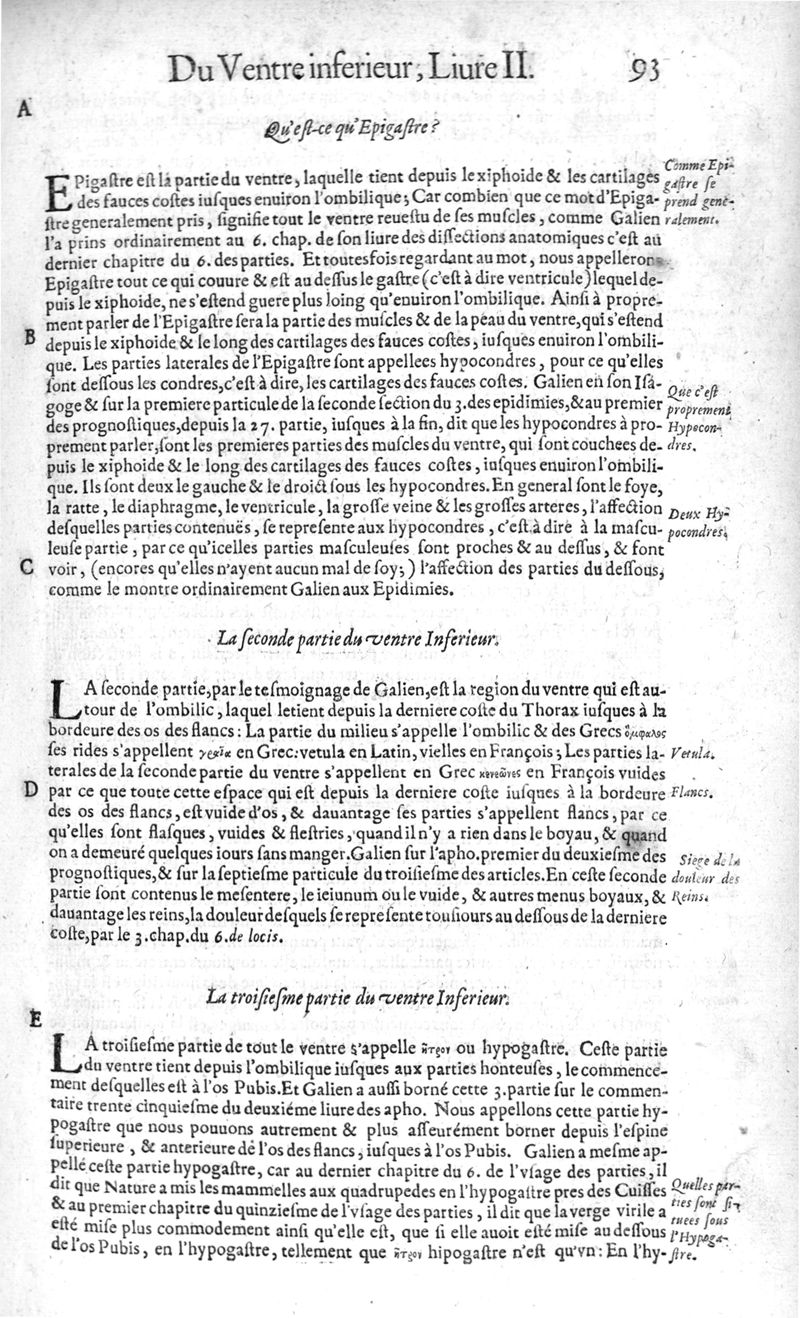 Du Ventre inferieur, Liure II. 93
A
Qu'eſt-ce qu'Epigaſtre?
EPigaſtre eſt la partie du ventre, laquelle tient depuis le xiphoide & les cartilages
des fauces coſtes iuſques enuiron l'ombilique; Car combien que ce mot d'Epiga-
ſtre generalement pris, ſignifie tout le ventre reueſtu de ſes muſcles, comme Galien
l'a prins ordinairement au 6. chap. de ſon liure des diſſections anatomiques c'eſt au
dernier chapitre du 6. des parties. Et toutesfois regardant au mot, nous appellerons
Epigaſtre tout ce qui couure & eſt au deſſus le gaſtre (c'eſt à dire ventricule) lequel de-
puis le xiphoide, ne s'eſtend guere plus loing qu'enuiron l'ombilique. Ainſi à propre-
ment parler de l'Epigaſtre ſera la partie des muſcles & de la peau du ventre, qui s'eſtend
depuis le xiphoide & le long des cartilages des fauces coſtes, iuſques enuiron l'ombili-
que. Les parties laterales de l'Epigaſtre ſont appellees hypocondres, pour ce qu'elles
ſont deſſous les condres, c'eſt à dire, les cartilages des fauces coſtes. Galien en ſon Iſa-
goge & ſur la premiere particule de la ſeconde ſection du 3. des epidimies, & au premier
des prognoſtiques, depuis la 27. partie, iuſques à la fin, dit que les hypocondres à pro-
prement parler, ſont les premieres parties des muſcles du ventre, qui ſont couchees de-
puis le xiphoide & le long des cartilages des fauces coſtes, iuſques enuiron l'ombili-
que. Ils ſont deux le gauche & le droict ſous les hypocondres. En general ſont le foye,
la ratte, le diaphragme, le ventricule, la groſſe veine & les groſſes arteres, l'affection
deſquelles parties contenuës, ſe repreſente aux hypocondres, c'eſt à dire à la maſcu-
leuſe partie, par ce qu'icelles parties maſculeuſes ſont proches & au deſſus, & font
voir, (encores qu'elles n'ayent aucun mal de ſoy;) l'affection des parties du deſſous,
comme le montre ordinairement Galien aux Epidimies.
Comme Epi-
gaſtre ſe
prend gene-
ralement.
B
Que c'eſt
proprement
Hypocon-
dres.
Deux Hy-
pocondres.
C
La ſeconde partie du ventre Inferieur.
LA ſeconde partie, par le teſmoignage de Galien, eſt la region du ventre qui eſt au-
tour de l'ombilic, laquel letient depuis la derniere coſte du Thorax iuſques à la
bordeure des os des flancs: La partie du milieu s'appelle l'ombilic & des Grecs ὄμφαλος
ſes rides s'appellent γραῖα en Grec: vetula en Latin, vielles en François; Les parties la-
terales de la ſeconde partie du ventre s'appellent en Grec κενεῶνες en François vuides
par ce que toute cette eſpace qui eſt depuis la derniere coſte iuſques à la bordeure
des os des flancs, eſt vuide d'os, & dauantage ſes parties s'appellent flancs, par ce
qu'elles ſont flaſques, vuides & fleſtries, quand il n'y a rien dans le boyau, & quand
on a demeuré quelques iours ſans manger. Galien ſur l'apho. premier du deuxieſme des
prognoſtiques, & ſur la ſeptieſme particule du troiſieſme des articles. En ceſte ſeconde
partie ſont contenus le meſentere, le ieiunum ou le vuide, & autres menus boyaux, &
dauantage les reins, la douleur deſquels ſe repreſente touſiours au deſſous de la derniere
coſte, par le 3. chap. du 6. de locis.
Vetula.
D
Flancs.
Siege de la
douleur des
Reins.
La troiſieſme partie du ventre Inferieur.
E
LA troiſieſme partie de tout le ventre s'appelle ἦτρον ou hypogaſtre. Ceſte partie
du ventre tient depuis l'ombilique iuſques aux parties honteuſes, le commence-
ment deſquelles eſt à l'os Pubis. Et Galien a auſſi borné cette 3. partie ſur le commen-
taire trente cinquieſme du deuxiéme liure des apho. Nous appellons cette partie hy-
pogaſtre que nous pouuons autrement & plus aſſeurément borner depuis l'eſpine
ſuperieure, & anterieure dé l'os des flancs, iuſques à l'os Pubis. Galien a meſme ap-
pellé ceſte partie hypogaſtre, car au dernier chapitre du 6. de l'vſage des parties, il
dit que Nature a mis les mammelles aux quadrupedes en l'hypogaſtre pres des Cuiſſes
& au premier chapitre du quinzieſme de l'vſage des parties, il dit que la verge virile a
eſté miſe plus commodement ainſi qu'elle eſt, que ſi elle auoit eſté miſe au deſſous
de l'os Pubis, en l'hypogaſtre, tellement que ἦτρον hipogaſtre n'eſt qu'vn: En l'hy-
Quelles par-
ties ſont ſi-
tuees ſous
l'Hypoga-
ſtre.